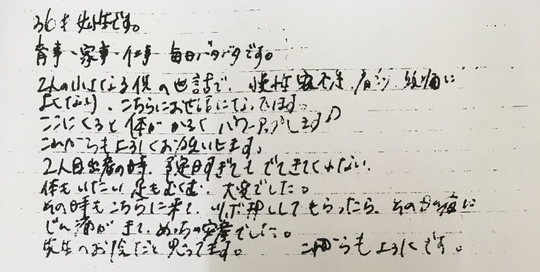 36才 女性です。
育事・家事・仕事 毎日バタバタです。
2人の小さな子供の世話で、慢性寝不足、肩こり 頭痛に
よくなり、こちらにお世話になってます。
ここにくると体がかるく パワーアップします♪
これからもよろしくお願いします。
2人目出産の時、予定日すぎても でてきてくれない、
体もいたい 足もむくむ、大変でした。
その時もこちらに来て、ツボ押ししてもらったら、その日の夜に
じん痛がきて、めっちゃ安産でした。
先生のお陰だと思ってます。 これからもよろしくです。